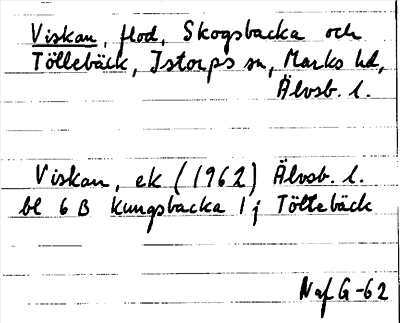 Viskan, flod, Skogsbacka och
Töllebäck, Istorps sn, Marks hd,
Älvsb. l.
Viskan, ek (1962) Älvsb. l.
bl 6 B Kungsbacka 1 j Töllebäck
Naf G-62